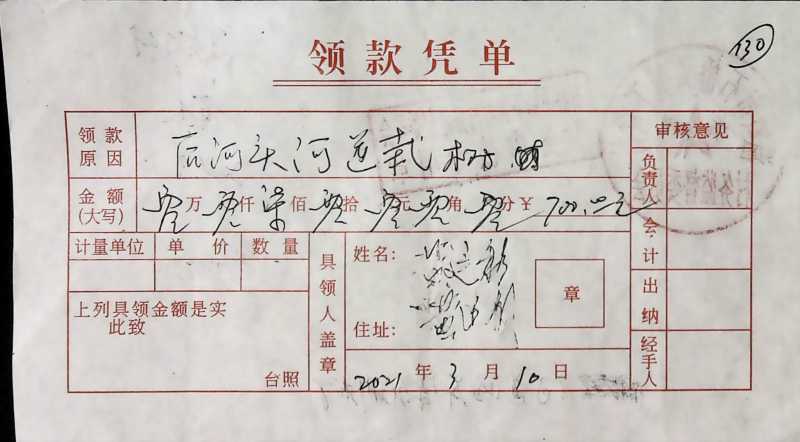 130
领款凭单
领款原因 后河头河道栽树
审核意见
金额(大写) 零万零仟柒佰零拾零元零角零分￥700.00元
负责人
计量单位 单价 数量
会计
具领人盖章
姓名:
章
上列具领金额是实
此致
出纳
住址:
台照
2021年3月10日
经手人